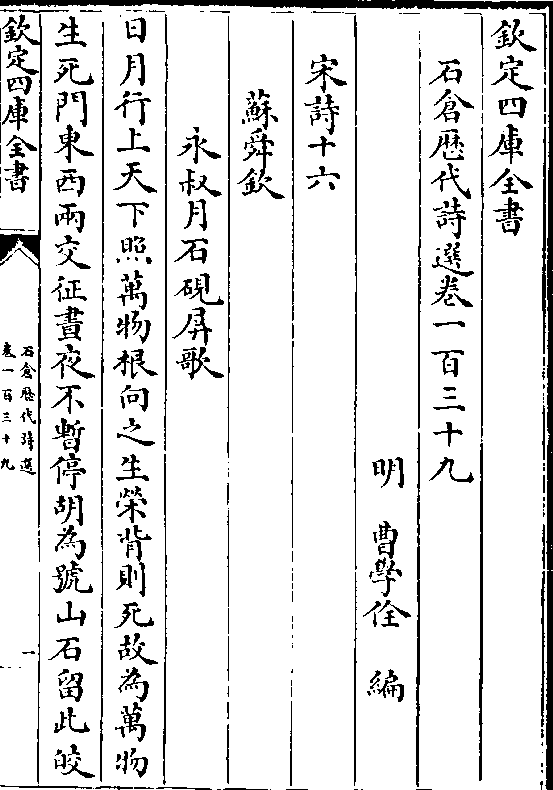 欽定四庫全書
石倉歴代詩選卷一百三十九
明 曹學佺 編
宋詩十六
蘇舜欽
永叔月石硯屏歌
日月行上天下照萬物根向之生榮背則死故為萬物
生死門東西兩交征晝夜不暫停胡為號山石留此皎
欽定四庫全書
石倉歷代詩選
卷一百三十九
一